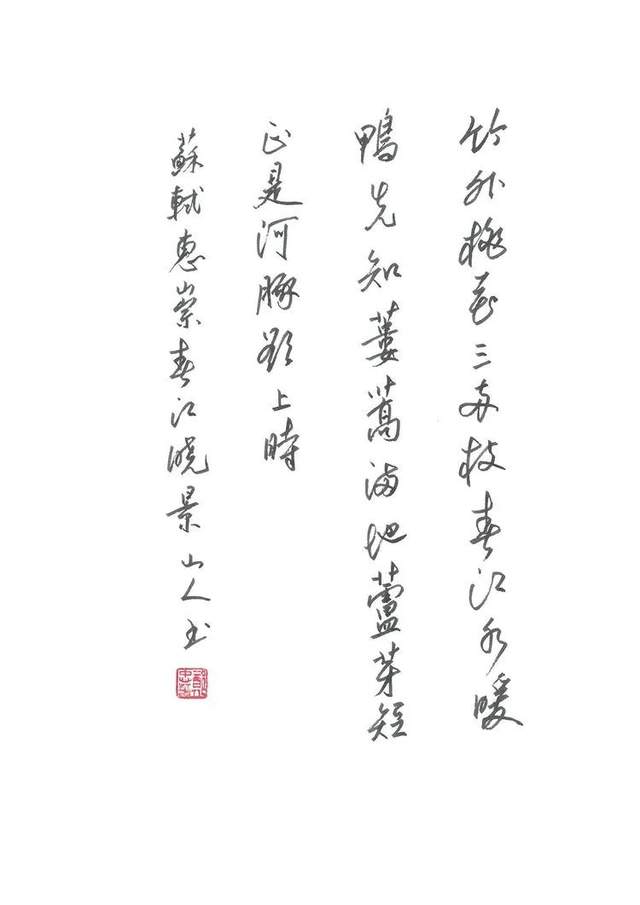 竹外桃花三兩枝春江水暖
鴨先知蔞蒿滿地蘆芽短
正是河豚欲上時
蘇軾惠崇春江曉景山人书